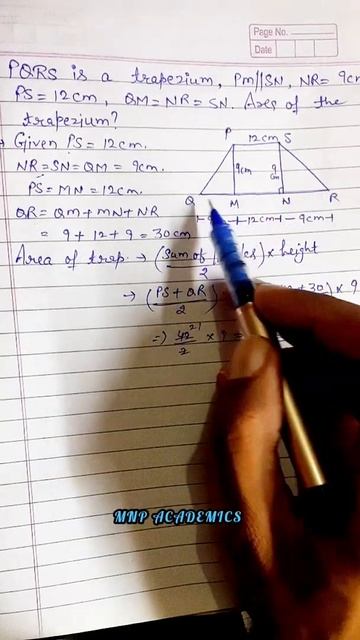 Page No.
Date
PQRS is a trapezium, PM||SN, NR = 9cm
PS = 12cm, QM = NR = SN. Area of the
trapezium?
Given PS = 12cm.
NR = SN = QM = 9cm.
PS = MN = 12cm.
QR = QM + MN + NR
= 9 + 12 + 9 = 30cm
P 12cm S
9cm 9cm
Q M N R
12cm 9cm
Area of trap → (Sum of || ) × height
2
→ (PS + QR) + 30) × 9
2
⇒ 42 21 × 9 =
2
MNP ACADEMICS